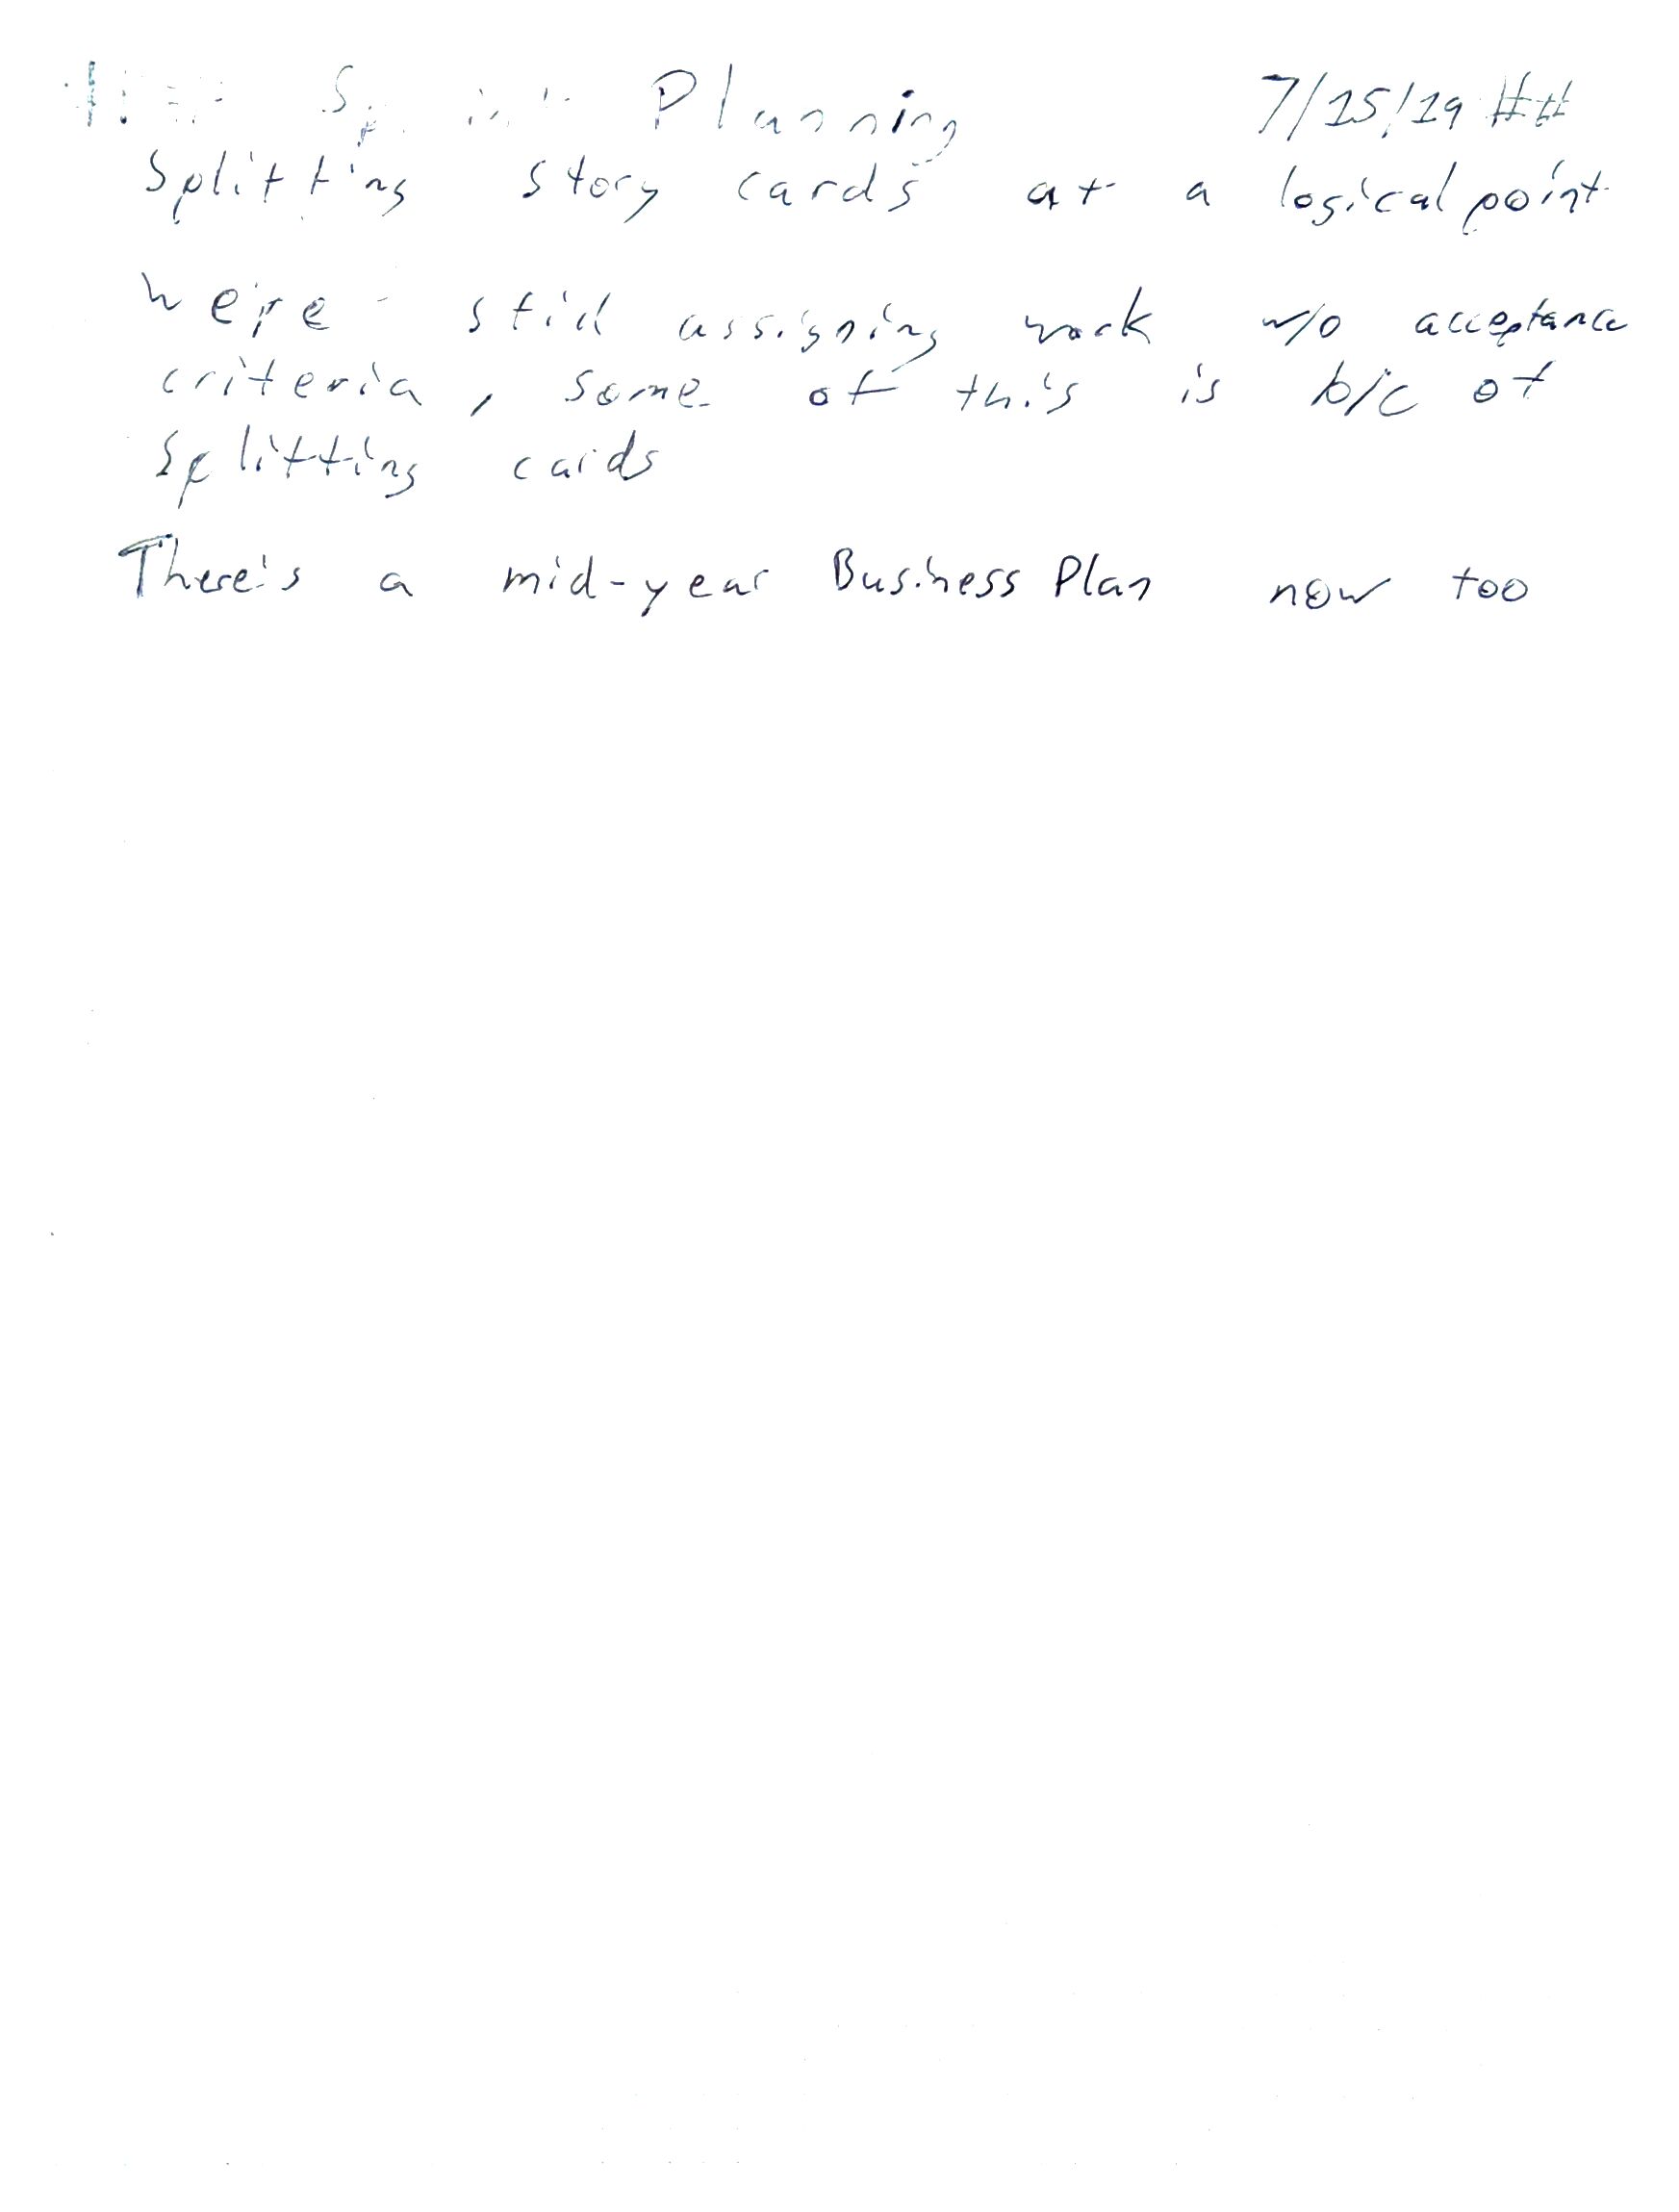 ## Sprint Planning 7/25/19 ##
Splitting story cards at a logical point
We're still assigning work w/o acceptance
criteria, some of this is b/c of
splitting cards
There's a mid-year Business Plan now too